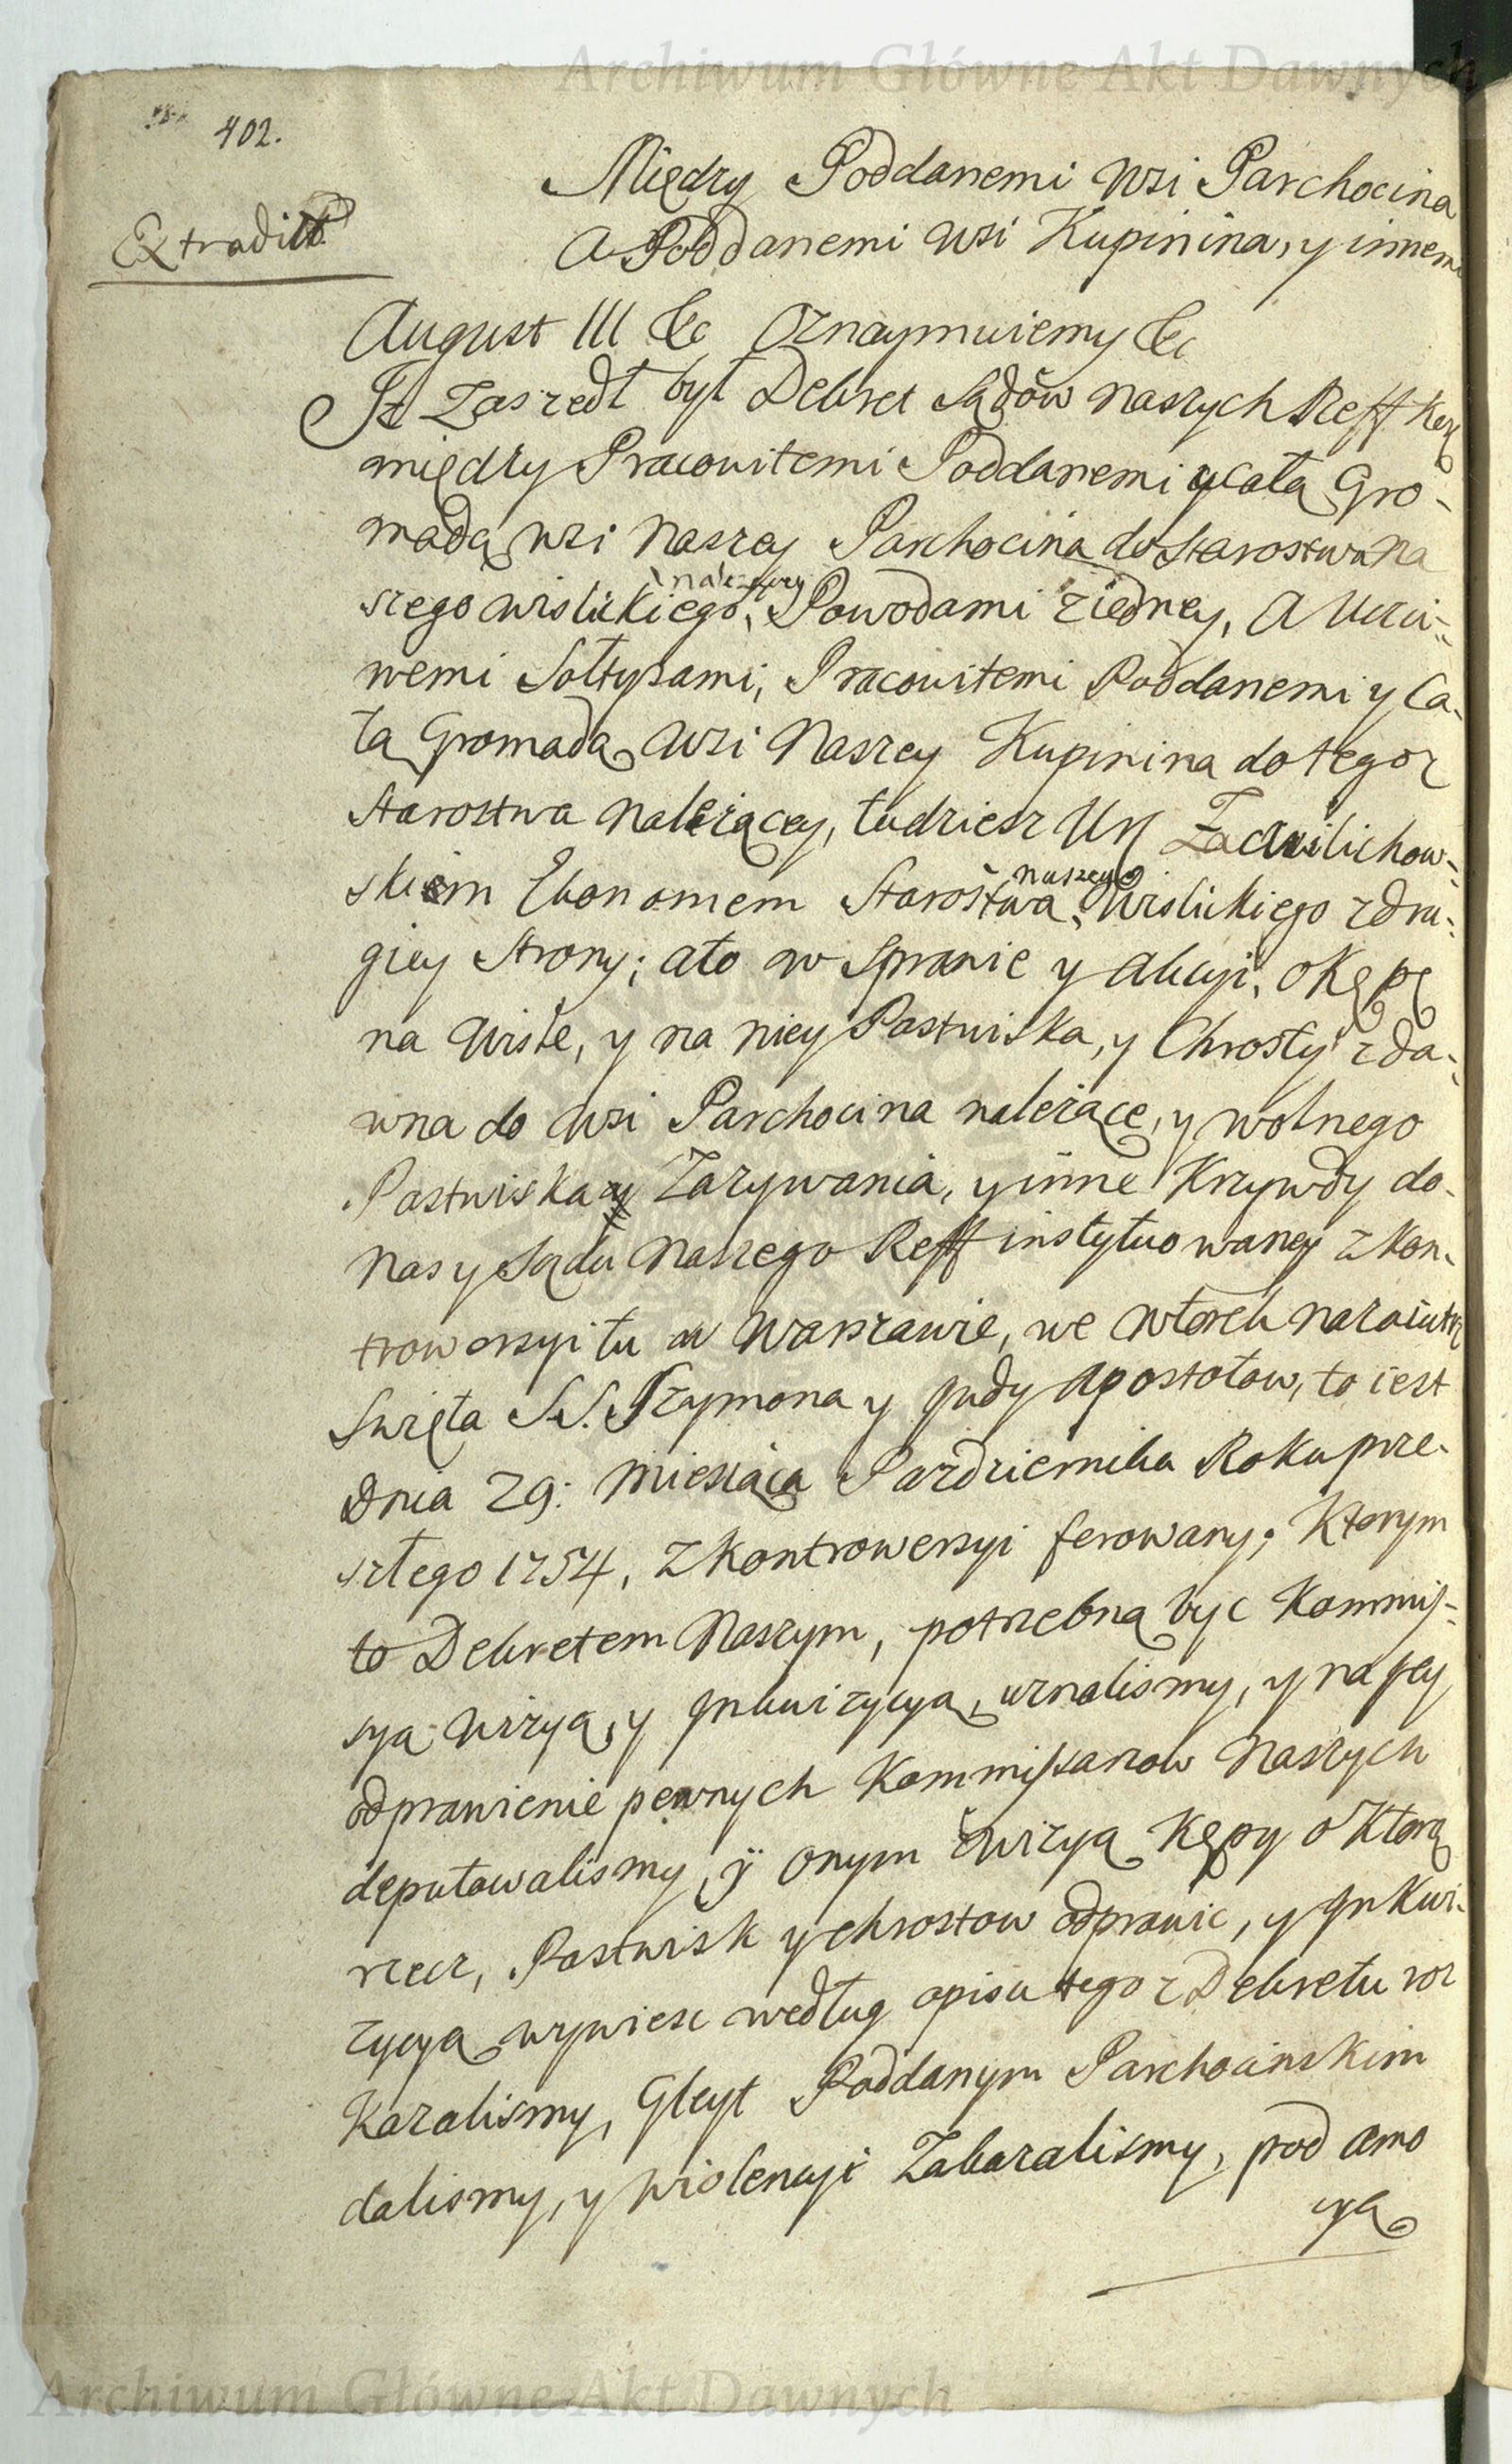 Archiwum Główne Akt Dawnych
402.
Extradit
Między Poddanemi Wsi Parchocina
A Poddanemi Wsi Kupinina, y innemi
August III &c Oznaymuiemy &c
Iż Zaszedł był Dekret Sądów naszych Reff
między Pracowitemi Poddanemi y Całą Gro-
madą wsi Naszey Parchocina do Starostwa Na
szego wislickiego, należącey Powodami z iedney, A Ucci-
wemi Sołtysami, Pracowitemi Poddanemi y Ca-
łą Gromadą Wsi Naszey Kupinina do tegoz
Starostwa Należącey, tudziesz Ur Zacwilichow-
skiem Ekonomem Starostwa naszego Wislickiego z dru-
giey Strony; ato w Sprawie y Akcyi, o Kępę
na Wisle, y na niey Pastwiska, y Chrosty z da-
wna do Wsi Parchocina należące, y wolnego
Pastwiska Zazywania, y inne Krzywdy do
Nas y Sądu Naszego Reff instytuowaney z kon-
trowersyi tu w Warszawie, we Wtorek nazaiutrz
Swięta S.S. Szymona y Judy Apostołow, to iest
Dnia 29: Miesiąca Pazdziernika Roku prze-
szłego 1754, z kontrowersyi ferowany; Ktorym
to Dekretem Naszym, potrzebną byc Kommis-
syą Wizyą, y Inkwizycyą, uznalismy, y na jey
odprawienie pewnych Kommissarzow Naszych
deputowalismy, y onym Wizyą Kępy o Ktorą
rzecz, Pastwisk y chrostow odprawic, y Inkwi-
zycyą wywiesc według opisu tegoz Dekretu roz
Kazalismy, Gleyt Poddanym Parchocinskim
dalismy, y wiolencyi Zakazalismy, pod amo
cyą
Archiwum Główne Akt Dawnych